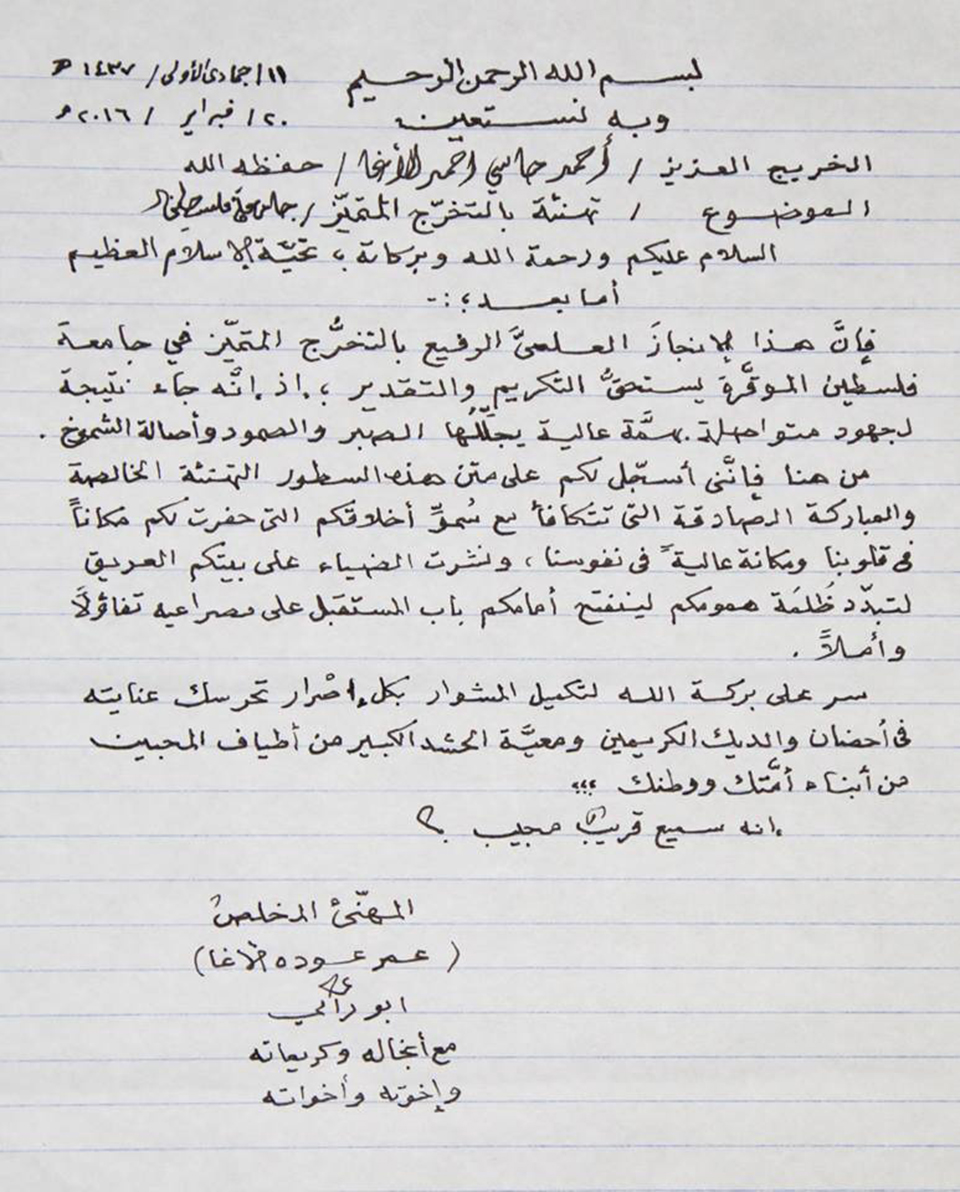 بسم الله الرحمن الرحيم ١١/ جمادى الأولى/ ١٤٣٧ هـ
وبه نستعين ٢٠/ فبراير / ٢٠١٦ م
الخريج العزيز / أحمد سامي أحمد الأغا/ حفظه الله
الموضوع / تهنئة بالتخرّج المتميّز/ جامعة فلسطين
السلام عليكم ورحمة الله وبركاته ، تحيّة الإسلام العظيم
أما بعد ؛ :-
فإنَّ هذا الإنجازَ العلميَّ الرفيع بالتخرُّج المتميّز في جامعة
فلسطين الموقَّرة يستحقُّ التكريم والتقدير ، إذ إنّه جاء نتيجة
لجهود متواصلة بهمَّة عالية يجلّلُها الصبر والصمود وأصالة الشموخ .
من هنا فإنَّني أسجّل لكم على متن هذه السطور التهنئة الخالصة
والمباركة الصادقة التي تتكافأ مع سُموِّ أخلاقكم التي حفرت لكم مكاناً
في قلوبنا ومكانة عاليةً في نفوسنا ، ونشرت الضياء على بيتكم العريق
لتبدّد ظُلمَة همومكم لينفتح أمامكم باب المستقبل على مصراعيه تفاؤلاً
وأملاً .
سر على بركة الله لتكميل المشوار بكل إصْرار تحرسك عنايته
في أحضان والديك الكريمين ومعيَّة الحشد الكبير من أطياف المحبين
من أبناء أمَّتك ووطنك ،،،
إنه سميع قريب مجيب ؟
المهنّئ المخلصُ
( عمر عوده الأغا)
ابو رأمي
مع أنجاله وكريماته
وإخوته وأخواته